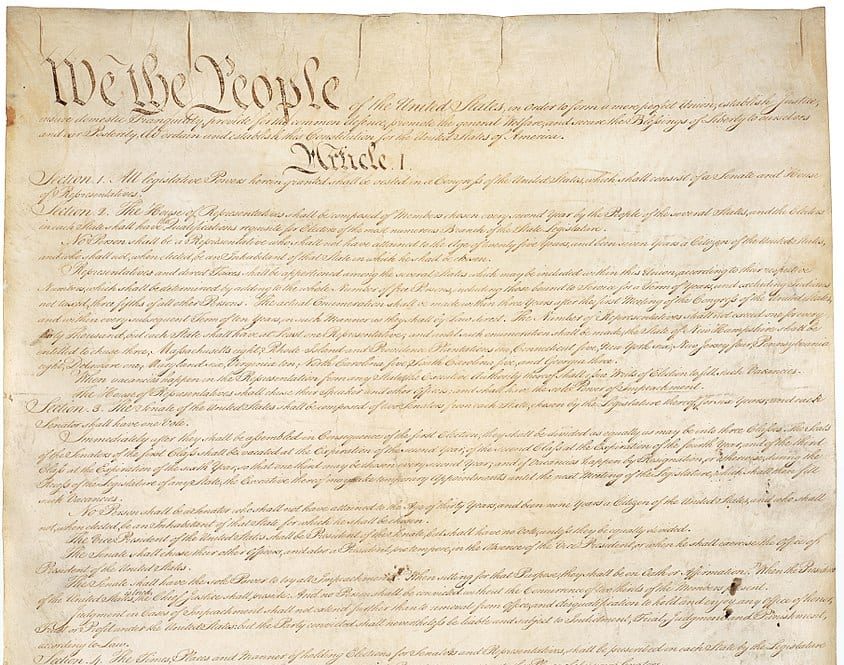 We the People of the United States, in Order to form a more perfect Union, establish Justice,
insure domestic Tranquility, provide for the common defence, promote the general Welfare, and secure the Blessings of Liberty to ourselves
and our Posterity, do ordain and establish this Constitution for the United States of America.
Article. I.
Section. 1. All legislative Powers herein granted shall be vested in a Congress of the United States, which shall consist of a Senate and House
of Representatives.
Section. 2. The House of Representatives shall be composed of Members chosen every second Year by the People of the several States, and the Electors
in each State shall have the Qualifications requisite for Electors of the most numerous Branch of the State Legislature.
No Person shall be a Representative who shall not have attained to the Age of twenty five Years, and been seven Years a Citizen of the United States,
and who shall not, when elected, be an Inhabitant of that State in which he shall be chosen.
Representatives and direct Taxes shall be apportioned among the several States which may be included within this Union, according to their respective
Numbers, which shall be determined by adding to the whole Number of free Persons, including those bound to Service for a Term of Years, and excluding Indians
not taxed, three fifths of all other Persons. The actual Enumeration shall be made within three Years after the first Meeting of the Congress of the United States,
and within every subsequent Term of ten Years, in such Manner as they shall by Law direct. The Number of Representatives shall not exceed one for every
thirty Thousand, but each State shall have at Least one Representative; and until such enumeration shall be made, the State of New Hampshire shall be
entitled to chuse three, Massachusetts eight, Rhode-Island and Providence Plantations one, Connecticut five, New-York six, New Jersey four, Pennsylvania
eight, Delaware one, Maryland six, Virginia ten, North Carolina five, South Carolina five, and Georgia three.
When vacancies happen in the Representation from any State, the Executive Authority thereof shall issue Writs of Election to fill such Vacancies.
The House of Representatives shall chuse their Speaker and other Officers; and shall have the sole Power of Impeachment.
Section. 3. The Senate of the United States shall be composed of two Senators from each State, chosen by the Legislature thereof, for six Years; and each
Senator shall have one Vote.
Immediately after they shall be assembled in Consequence of the first Election, they shall be divided as equally as may be into three Classes. The Seats
of the Senators of the first Class shall be vacated at the Expiration of the second Year, of the second Class at the Expiration of the fourth Year, and of the third
Class at the Expiration of the sixth Year, so that one third may be chosen every second Year; and if Vacancies happen by Resignation, or otherwise, during the
Recess of the Legislature of any State, the Executive thereof may make temporary Appointments until the next Meeting of the Legislature, which shall then fill
such Vacancies.
No Person shall be a Senator who shall not have attained to the Age of thirty Years, and been nine Years a Citizen of the United States, and who shall
not, when elected, be an Inhabitant of that State for which he shall be chosen.
The Vice President of the United States shall be President of the Senate, but shall have no Vote, unless they be equally divided.
The Senate shall chuse their other Officers, and also a President pro tempore, in the Absence of the Vice President, or when he shall exercise the Office of
President of the United States.
The Senate shall have the sole Power to try all Impeachments. When sitting for that Purpose, they shall be on Oath or Affirmation. When the President
of the United States is tried, the Chief Justice shall preside: And no Person shall be convicted without the Concurrence of two thirds of the Members present.
Judgment in Cases of Impeachment shall not extend further than to removal from Office, and disqualification to hold and enjoy any Office of honor,
Trust or Profit under the United States: but the Party convicted shall nevertheless be liable and subject to Indictment, Trial, Judgment and Punishment,
according to Law.
Section. 4. The Times, Places and Manner of holding Elections for Senators and Representatives, shall be prescribed in each State by the Legislature